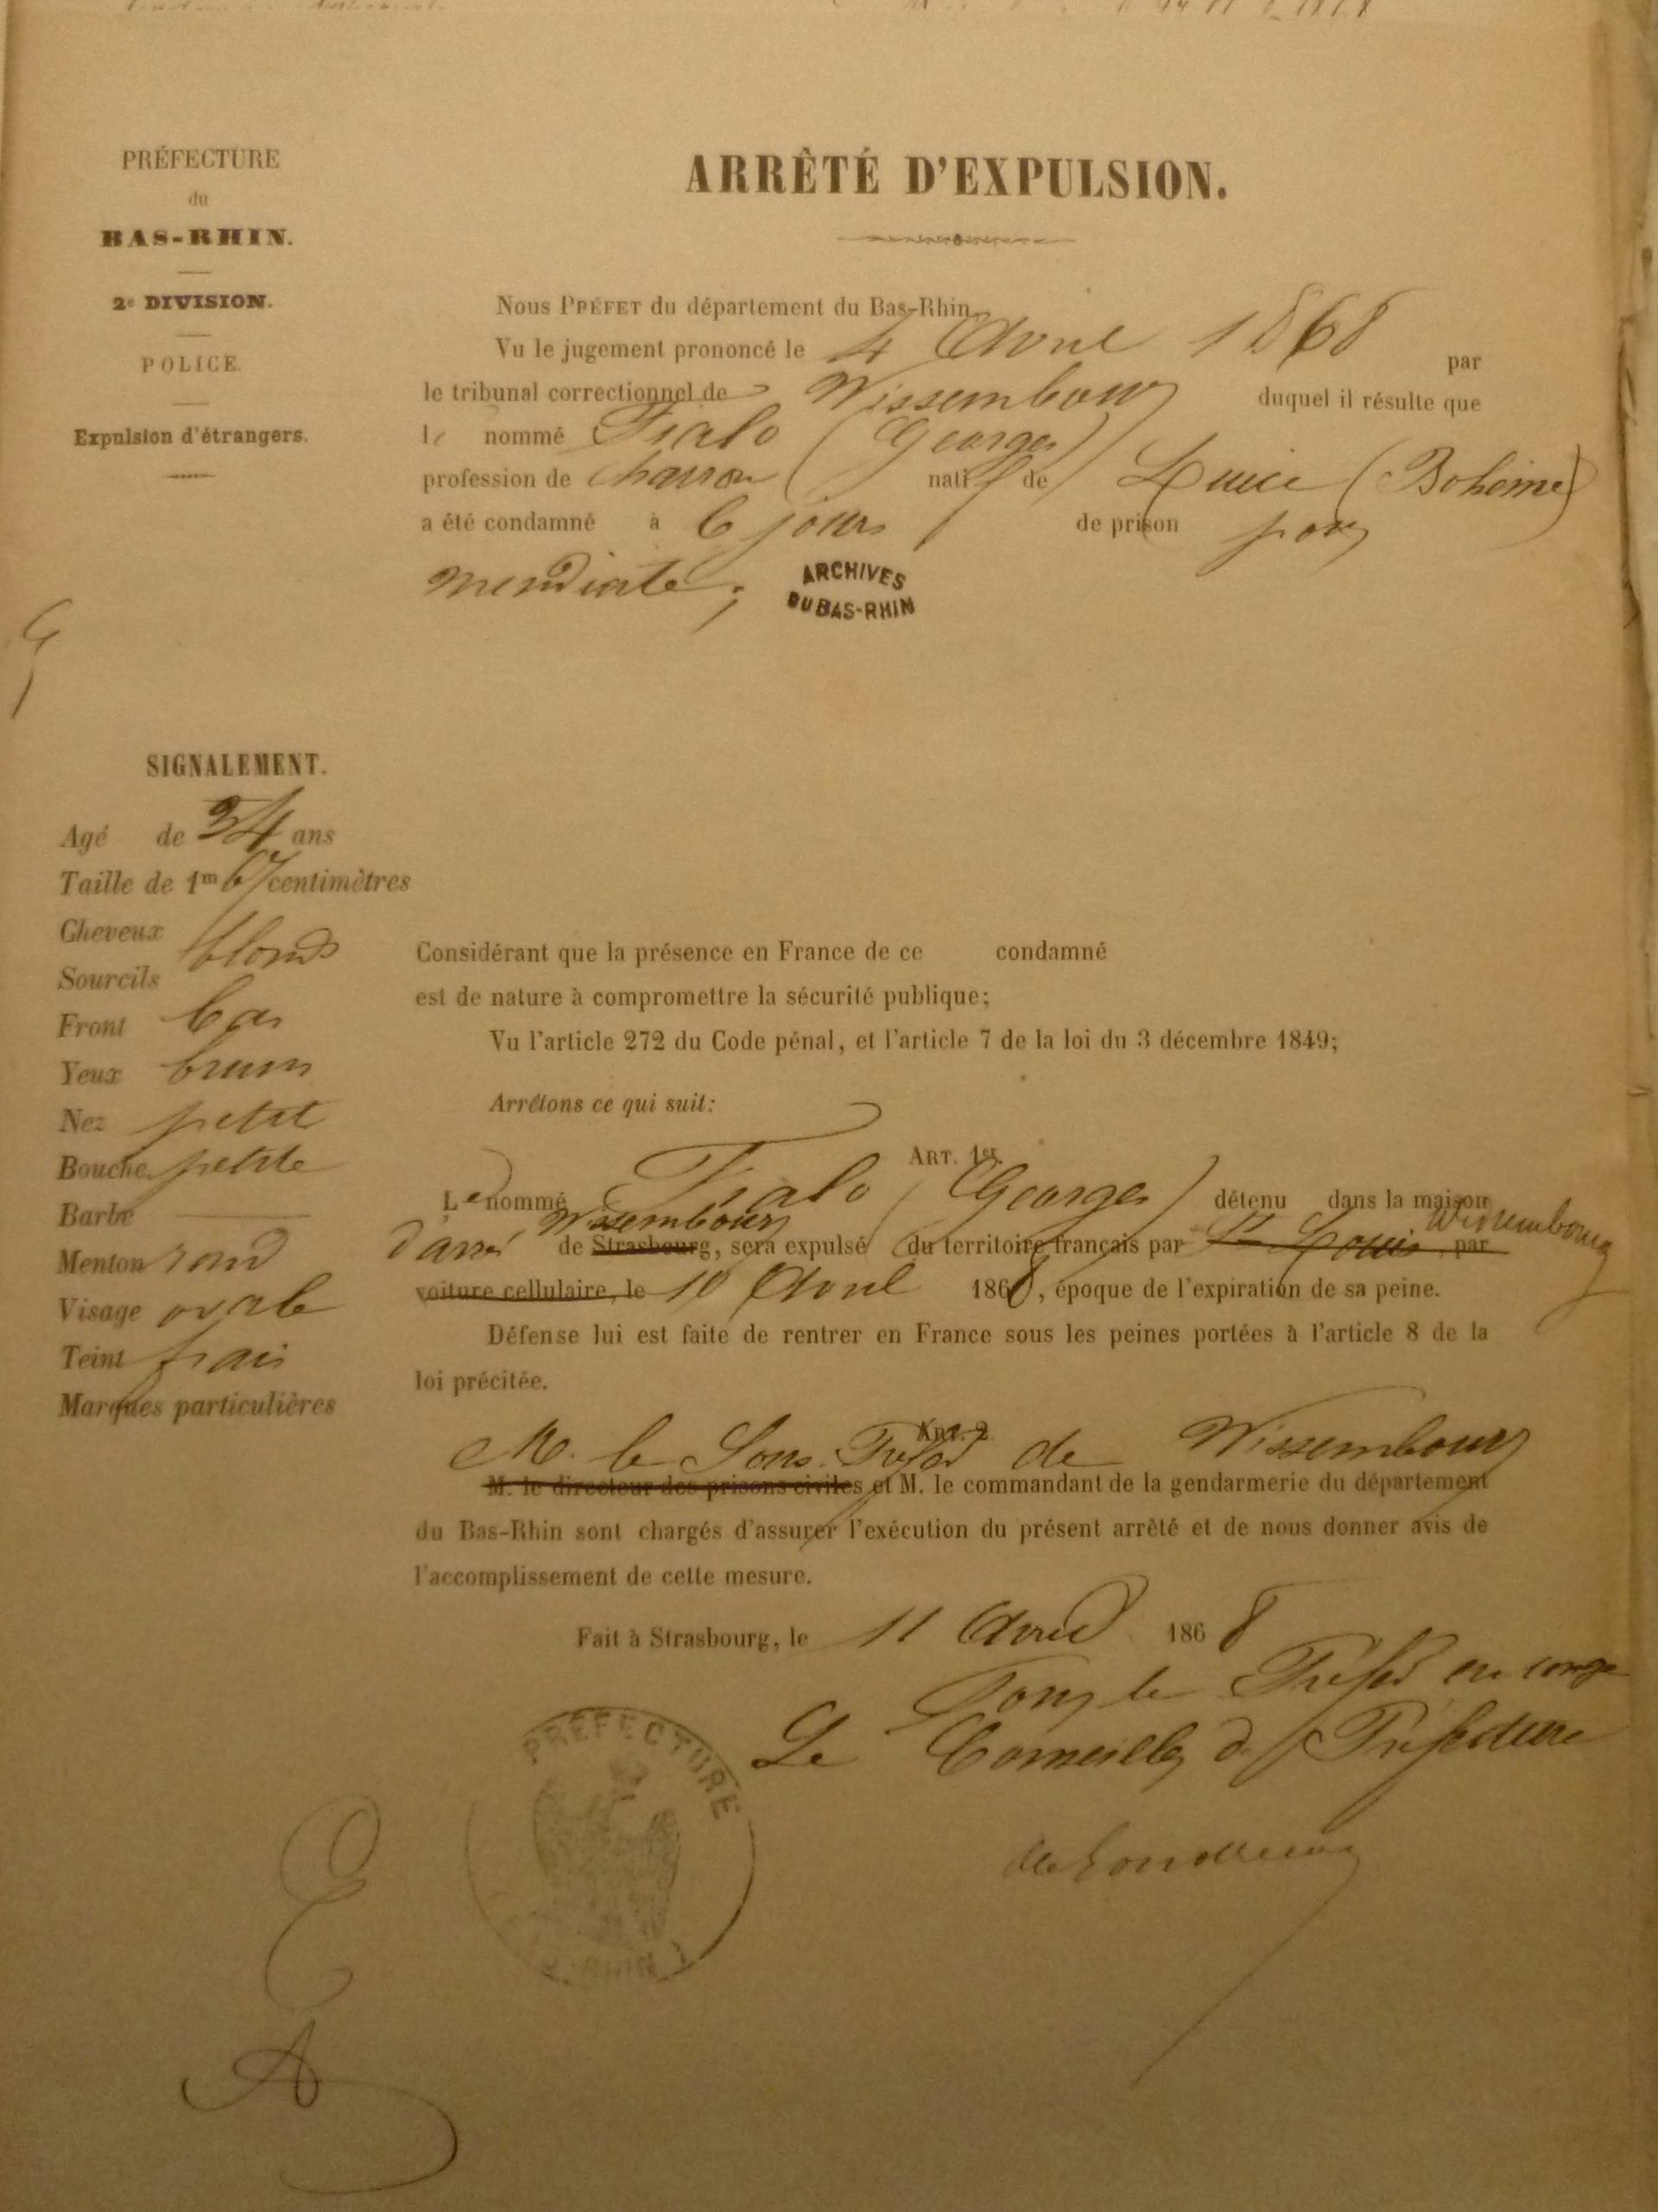 PRÉFECTURE
du
BAS-RHIN.
2e DIVISION.
POLICE.
Expulsion d'étrangers.
ARRÊTÉ D'EXPULSION.
Nous PRÉFET du département du Bas-Rhin,
Vu le jugement prononcé le 4 Avril 1868 par
le tribunal correctionnel de Wissembourg duquel il résulte que
le nommé Fialo (Georges)
profession de charron natif de (Bohême)
a été condamné à 6 jours de prison pour
mendicité;
ARCHIVES
DU BAS-RHIN
SIGNALEMENT.
Agé de 34 ans
Taille de 1m 67 centimètres
Cheveux
blonds
Sourcils
Front bas
Yeux bruns
Nez petit
Bouche petite
Barbe
Menton rond
Visage ovale
Teint frais
Marques particulières
Considérant que la présence en France de ce condamné
est de nature à compromettre la sécurité publique;
Vu l'article 272 du Code pénal, et l'article 7 de la loi du 3 décembre 1849;
Arrêtons ce qui suit:
ART. 1er.
Le nommé Fialo (Georges) détenu dans la maison
d'arrêt Wissembourg de Strasbourg, sera expulsé du territoire français par St Louis par Wissembourg
voiture cellulaire, le 10 Avril 1868, époque de l'expiration de sa peine.
Défense lui est faite de rentrer en France sous les peines portées à l'article 8 de la
loi précitée.
ART. 2
M. le Sous-Préfet de Wissembourg
M. le directeur des prisons civiles et M. le commandant de la gendarmerie du département
du Bas-Rhin sont chargés d'assurer l'exécution du présent arrêté et de nous donner avis de
l'accomplissement de cette mesure.
Fait à Strasbourg, le 11 Avril 1868
Pour le Préfet en congé
Le Conseiller de Préfecture
PREFECTURE
RHIN